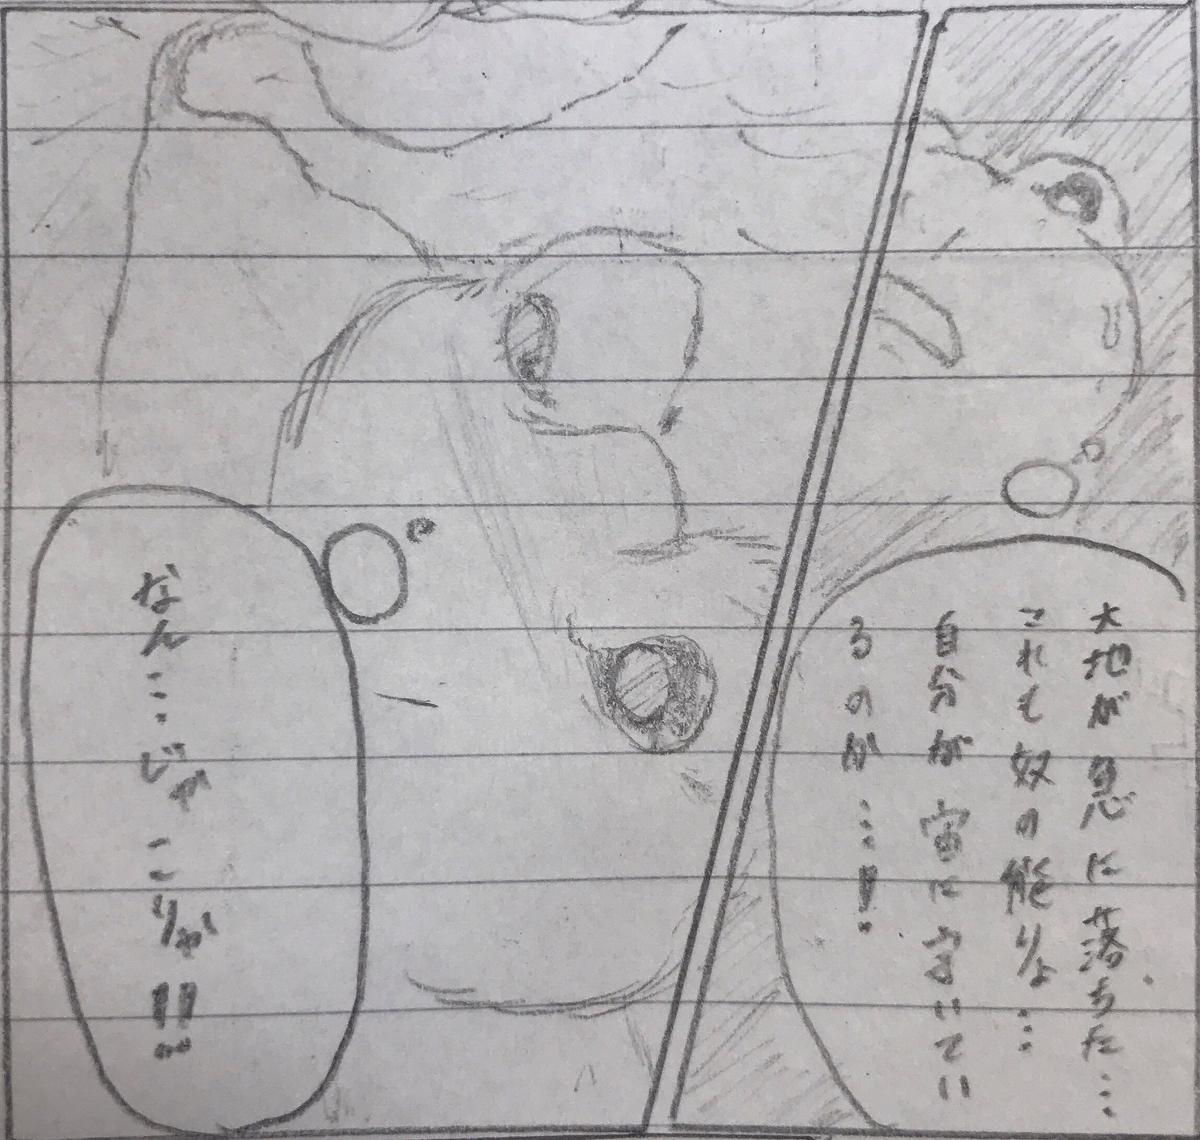 大地が急に落ちた…
これも奴の能りょ…
自分が宙に字いてい
るのか…!
なん…じゃこりゃ!!